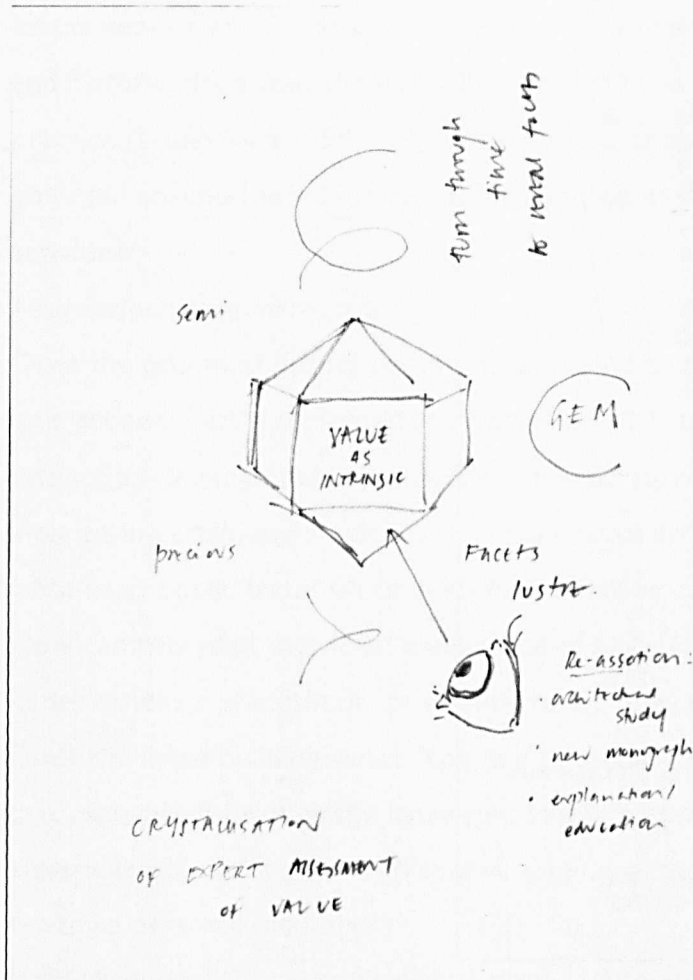 turn through
time
to reveal facets
semi
GEM
VALUE
AS
INTRINSIC
precious
FACETS
lustre
Re-assertion:
architectural
study
• new monograph
• explanation/
education
CRYSTALLISATION
OF EXPERT ASSESSMENT
OF VALUE